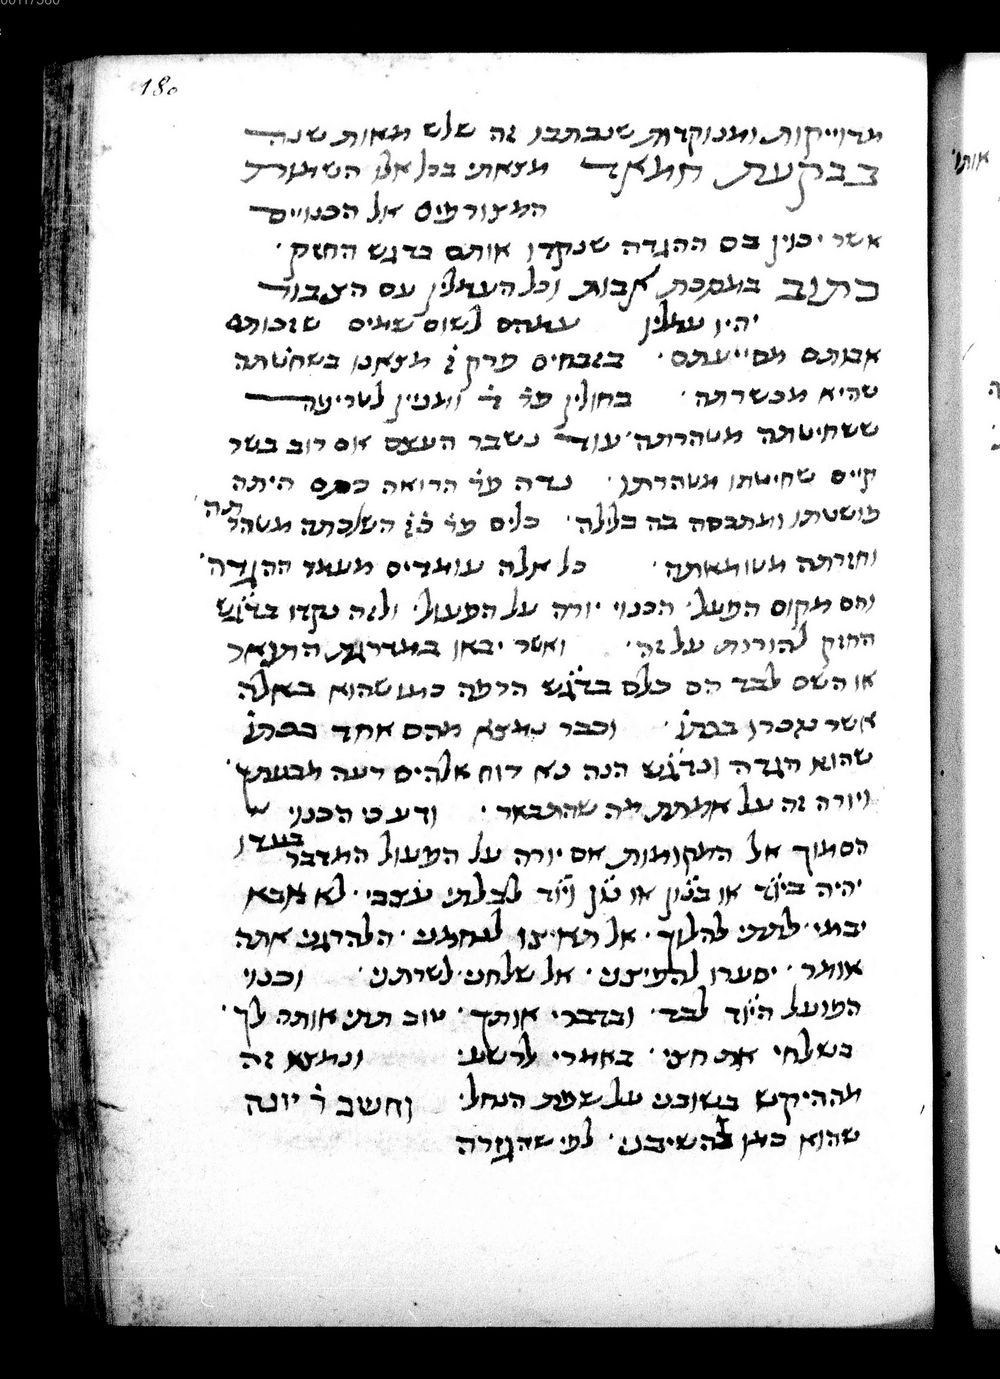 180
מדוייקות ומנוקדות שנכתבו זה שלש מאות שנה
בבקעת חמאד מצאתי בכל אלו השמות
המצורפים אל הכנויים
אשר יכנין בם ההגדה שנקדו אותם בדגש החזק
כתוב במסכת אבות וכל העמלין עם הצבור
יהיו עמלין עמהם לשום שמים שזכות
אבותם מסייעתם בזבחים פרק ז מצאנו בשחטתה
שהיא מכשרתה בחולין פר ד ומנין לטריפה
ששחיטתה מטהרתה עוד נשבר העצם אם רוב בשר
קיים שחיטתו מטהרתו נדה פר הרואה כתם היתה
פושטתו ומתכסה בה בלילה כלים פר השלכתה מטהר תה
וחזרתה מטומאתה כל אלה עומדים מעמד ההגדה
והם מקום הפעל הכנוי יורה על הפעול ולזה נקדו בדגש
החזק להורות על זה ואשר יבאו במדרגת התואר
או השם לבד הם כלם בדגש הרפה כמו שהוא באלה
אשר נזכרו בכתו וכבר נמצא מהם אחד בכתו
שהוא הגדה ונדגש הנה נא רוח אלהים רעה מבעתך
ויורה זה על אמתת מה שהתבאר ודע כי הכנוי
הסמוך אל המקומות אם יורה על הפעול המדבר בעדו
יהיה ביוד או בנון או נון ויוד לבלתי עצבי לא אבא
יבמי לתתי להלוך אל תאיצו לנחמני הלהרגני אתה
אומר יסערו להפיצני אל שלחני לשרתני וכנוי
הפועל היוד לבד ובדברי אותך טוב תתי אותה לך
בשלחי את חצי באמרי לרשע ונמצא זה
מההיקש בשובני על שפת הנחל וחשב ר יונה
שהוא כמו להשיבני לפי שהגזרה